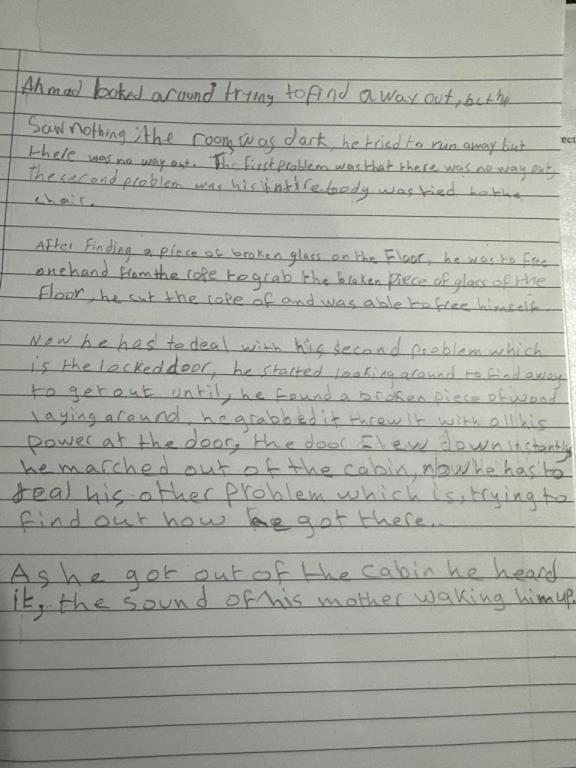 Ahmad looked around trying to find a way out, but he
saw nothing, the room was dark, he tried to run away but
there was no way out. The first problem was that there was no way out,
the second problem was his intire body was tied to the
chair.
After finding a piece of broken glass on the Floor, he was to free
one hand from the rope to grab the broken piece of glass of the
Floor, he cut the rope of and was able to free himself.
Now he has to deal with his second problem which
is the locked door, he started looking around to find a way
to get out until, he found a broken piece of wood
laying around, he grabbed it threw it with all his
power at the door, the door Flew down instantly
he marched out of the cabin, now he has to
deal his other problem which is, trying to
find out how he got there..
As he got out of the cabin he heard
it, the sound of his mother waking him up.
ect